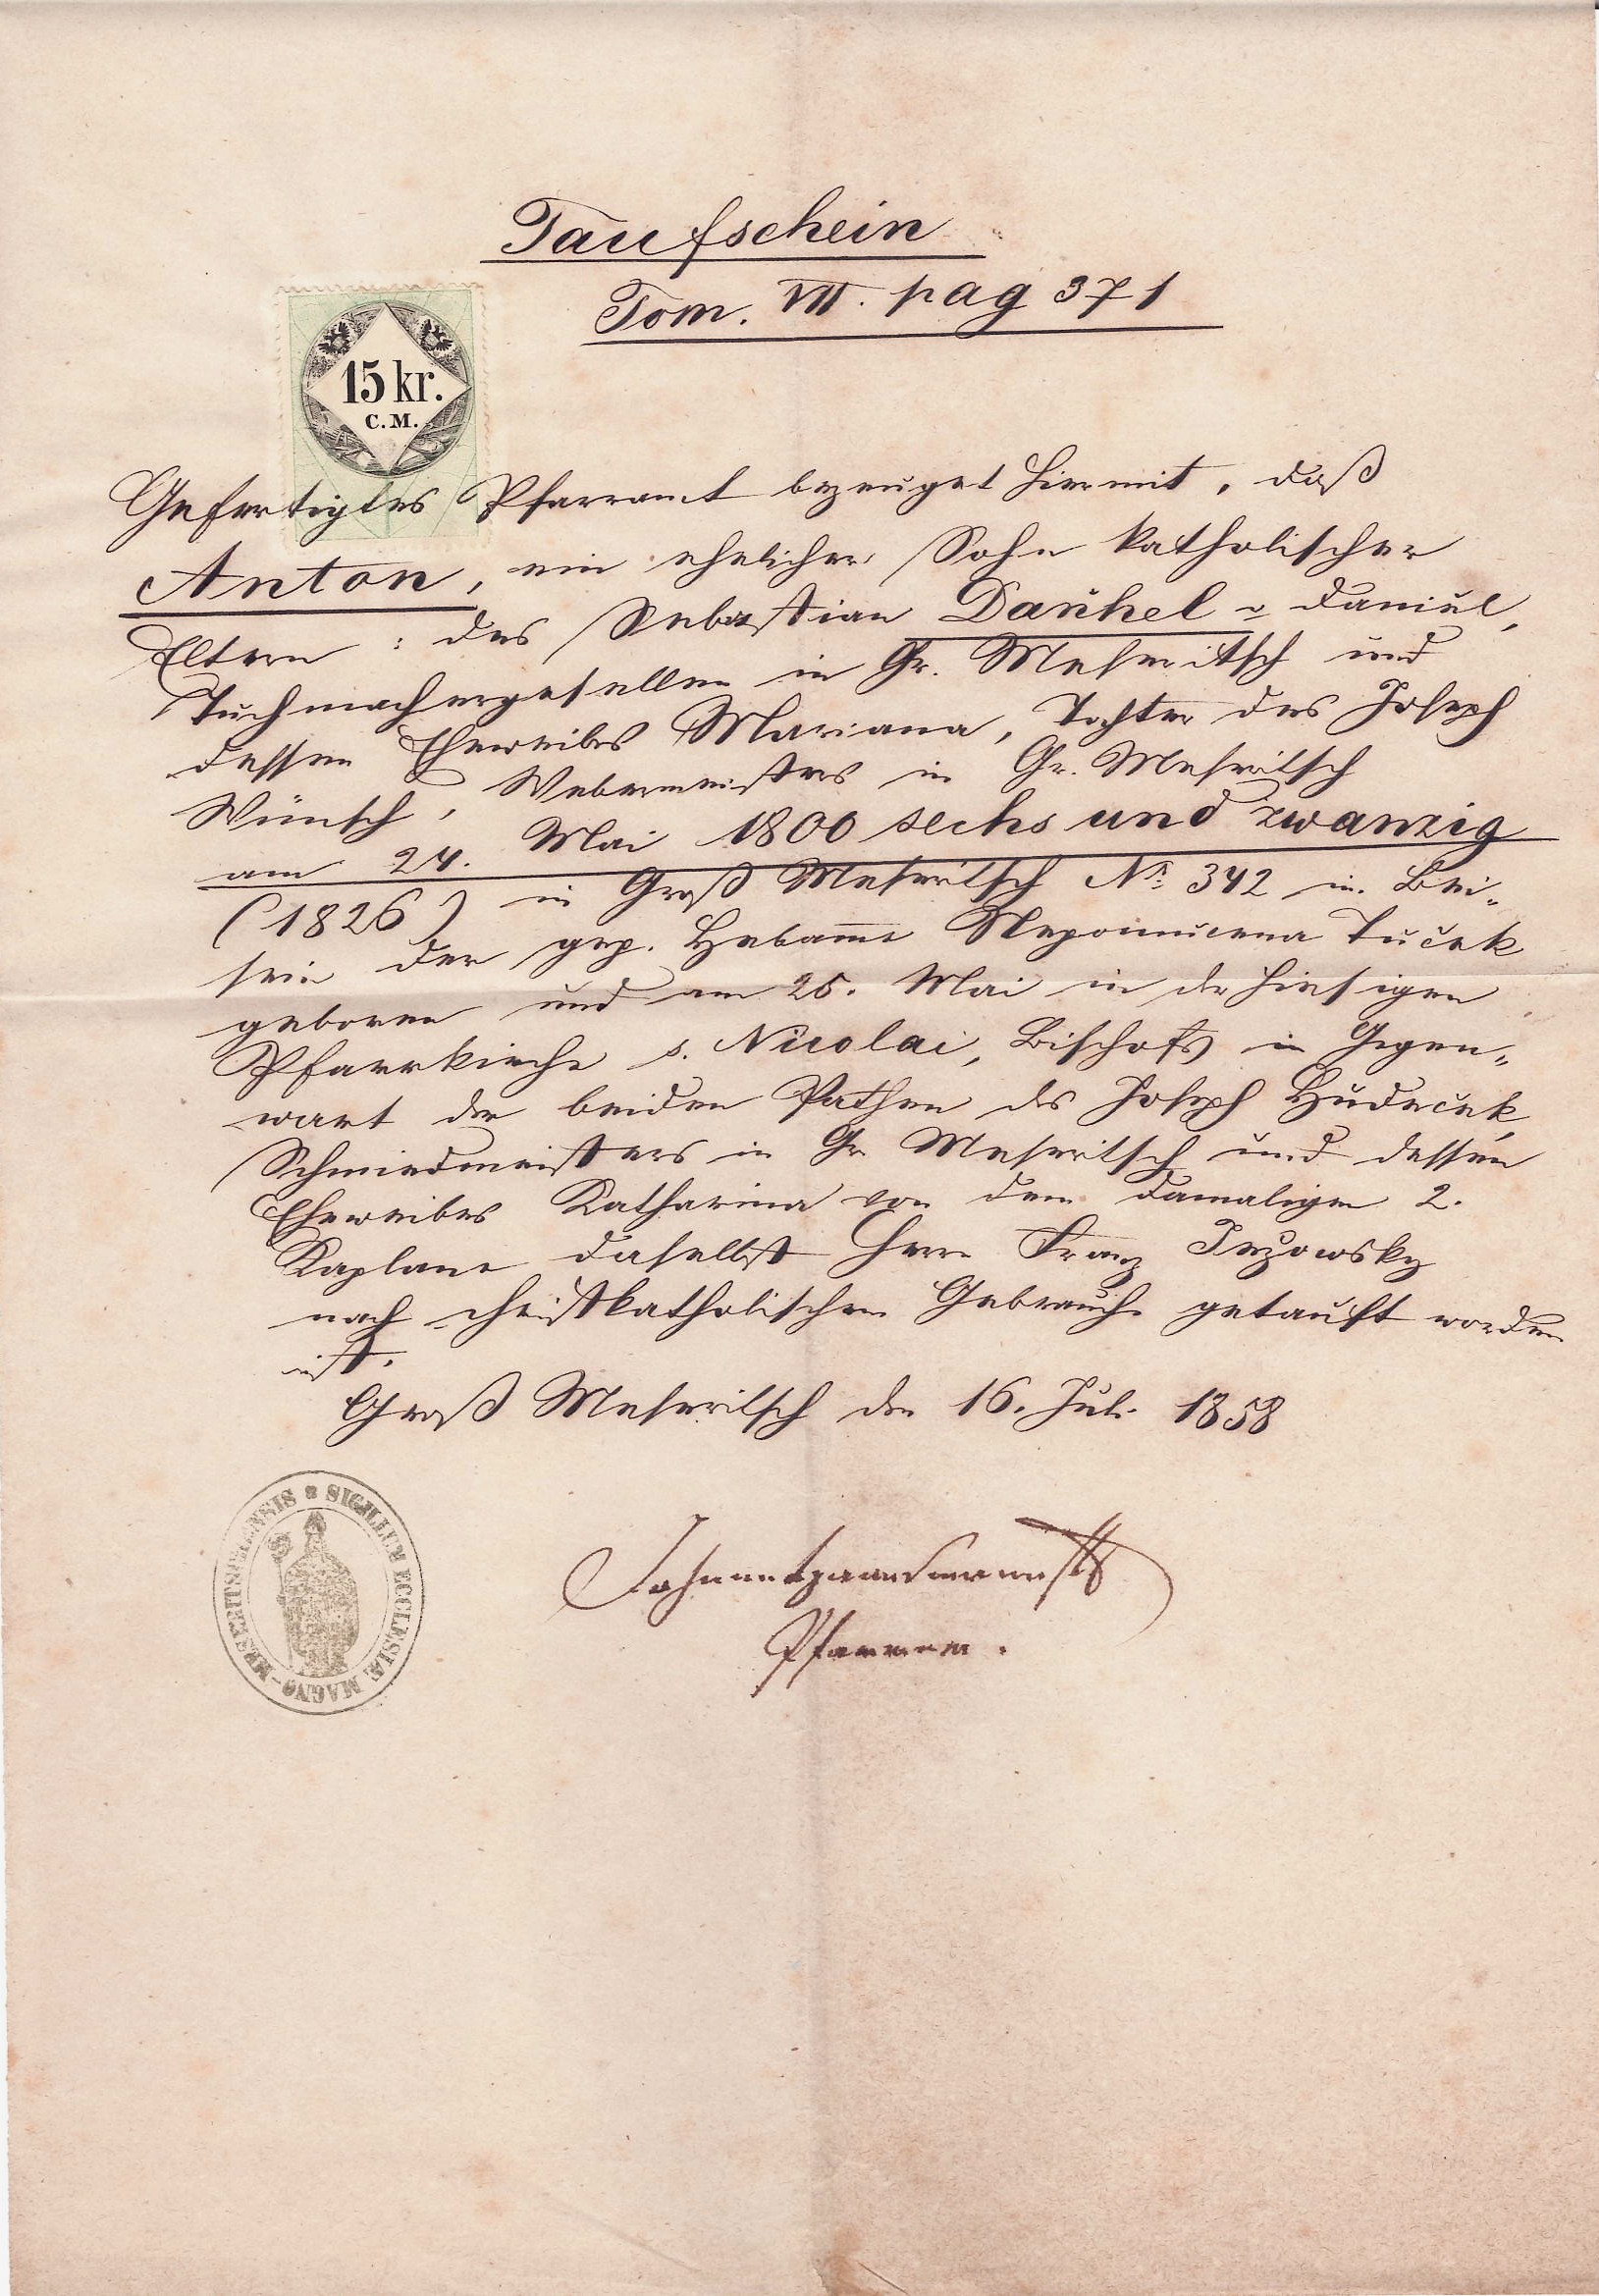 Taufschein
Tom. VII. pag 371
15 kr.
C.M.
Gefertigtes Pfarramt bezeuget hiermit, daß
Anton, ein ehelicher Sohn katholischer
Eltern : des Sebastian Daňhel v Daniel,
Tuchmachergesellen in Gr. Meseritsch und
dessen Eheweibes Mariana, Tochter des Joseph
Wünsch, Webermeisters in Gr. Meseritsch
am 24. Mai 1800 sechs und zwanzig
(1826) in Groß Meseritsch No. 342 in Bei-
sein der gep. Hebamme Nepomucena Tuček
geboren und am 25. Mai in der hiesigen
Pfarrkirche s. Nicolai, Bischofs in Gegen-
wart der beiden Pathen des Joseph Hudeček,
Schmiedmeisters in Gr Meseritsch und dessen
Eheweibes Katharina von dem damaligen 2.
Kaplane daselbst Herrn Franz
nach christkatholischem Gebrauche getauft worden
ist.
Groß Meseritsch den 16. Juli 1858
SIGILLUM ECCLESIÆ MAGNO-MESERITSCHENSIS
Pfarrer.